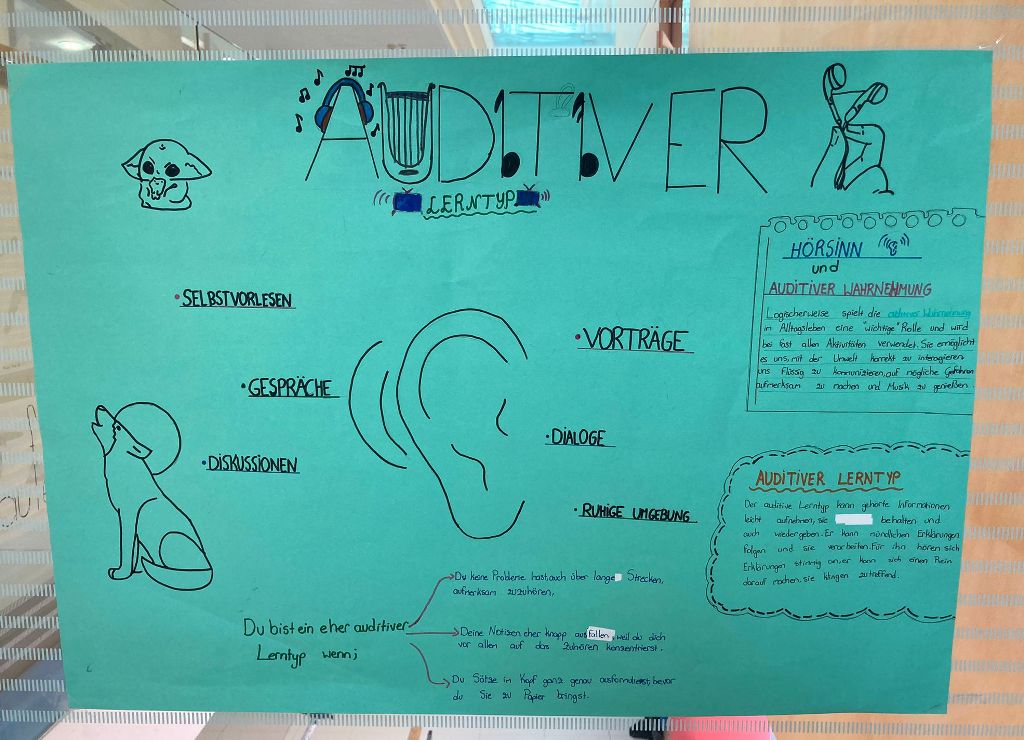 AUDITIVER
LERNTYP
HÖRSINN
und
AUDITIVER WAHRNEHMUNG
Logischerweise spielt die auditiver Wahrnemung
in Alltagsleben eine "wichtige" Rolle und wird
bei fast allen Aktivitäten verwendet. Sie ermöglicht
es uns, mit der Umwelt korrekt zu interagieren,
uns Flüssig zu kommunizieren, auf mögliche Gefahren
aufmerksam zu machen und Musik zu genießen.
• SELBSTVORLESEN
• VORTRÄGE
• GESPRÄCHE
• DIALOGE
• DISKUSSIONEN
• RUHIGE UMGEBUNG
AUDITIVER LERNTYP
Der auditive Lerntyp kann gehörte Informationen
leicht aufnehmen, sie behalten und
auch wiedergeben. Er kann mündlichen Erklärungen
folgen und sie verarbeiten. Für ihn hören sich
Erklärungen stimmig an, er kann sich einen Reim
darauf machen, sie klingen zutreffend.
Du bist ein eher auditiver
Lerntyp wenn;
Du keine Probleme hast, auch über lange Strecken,
aufmerksam zuzuhören,
Deine Notizen eher knapp ausfallen, weil du dich
vor allen auf das Zuhören konzentrierst.
Du Sätze im Kopf ganz genau ausformulierst, bevor
du Sie zu Papier bringst.